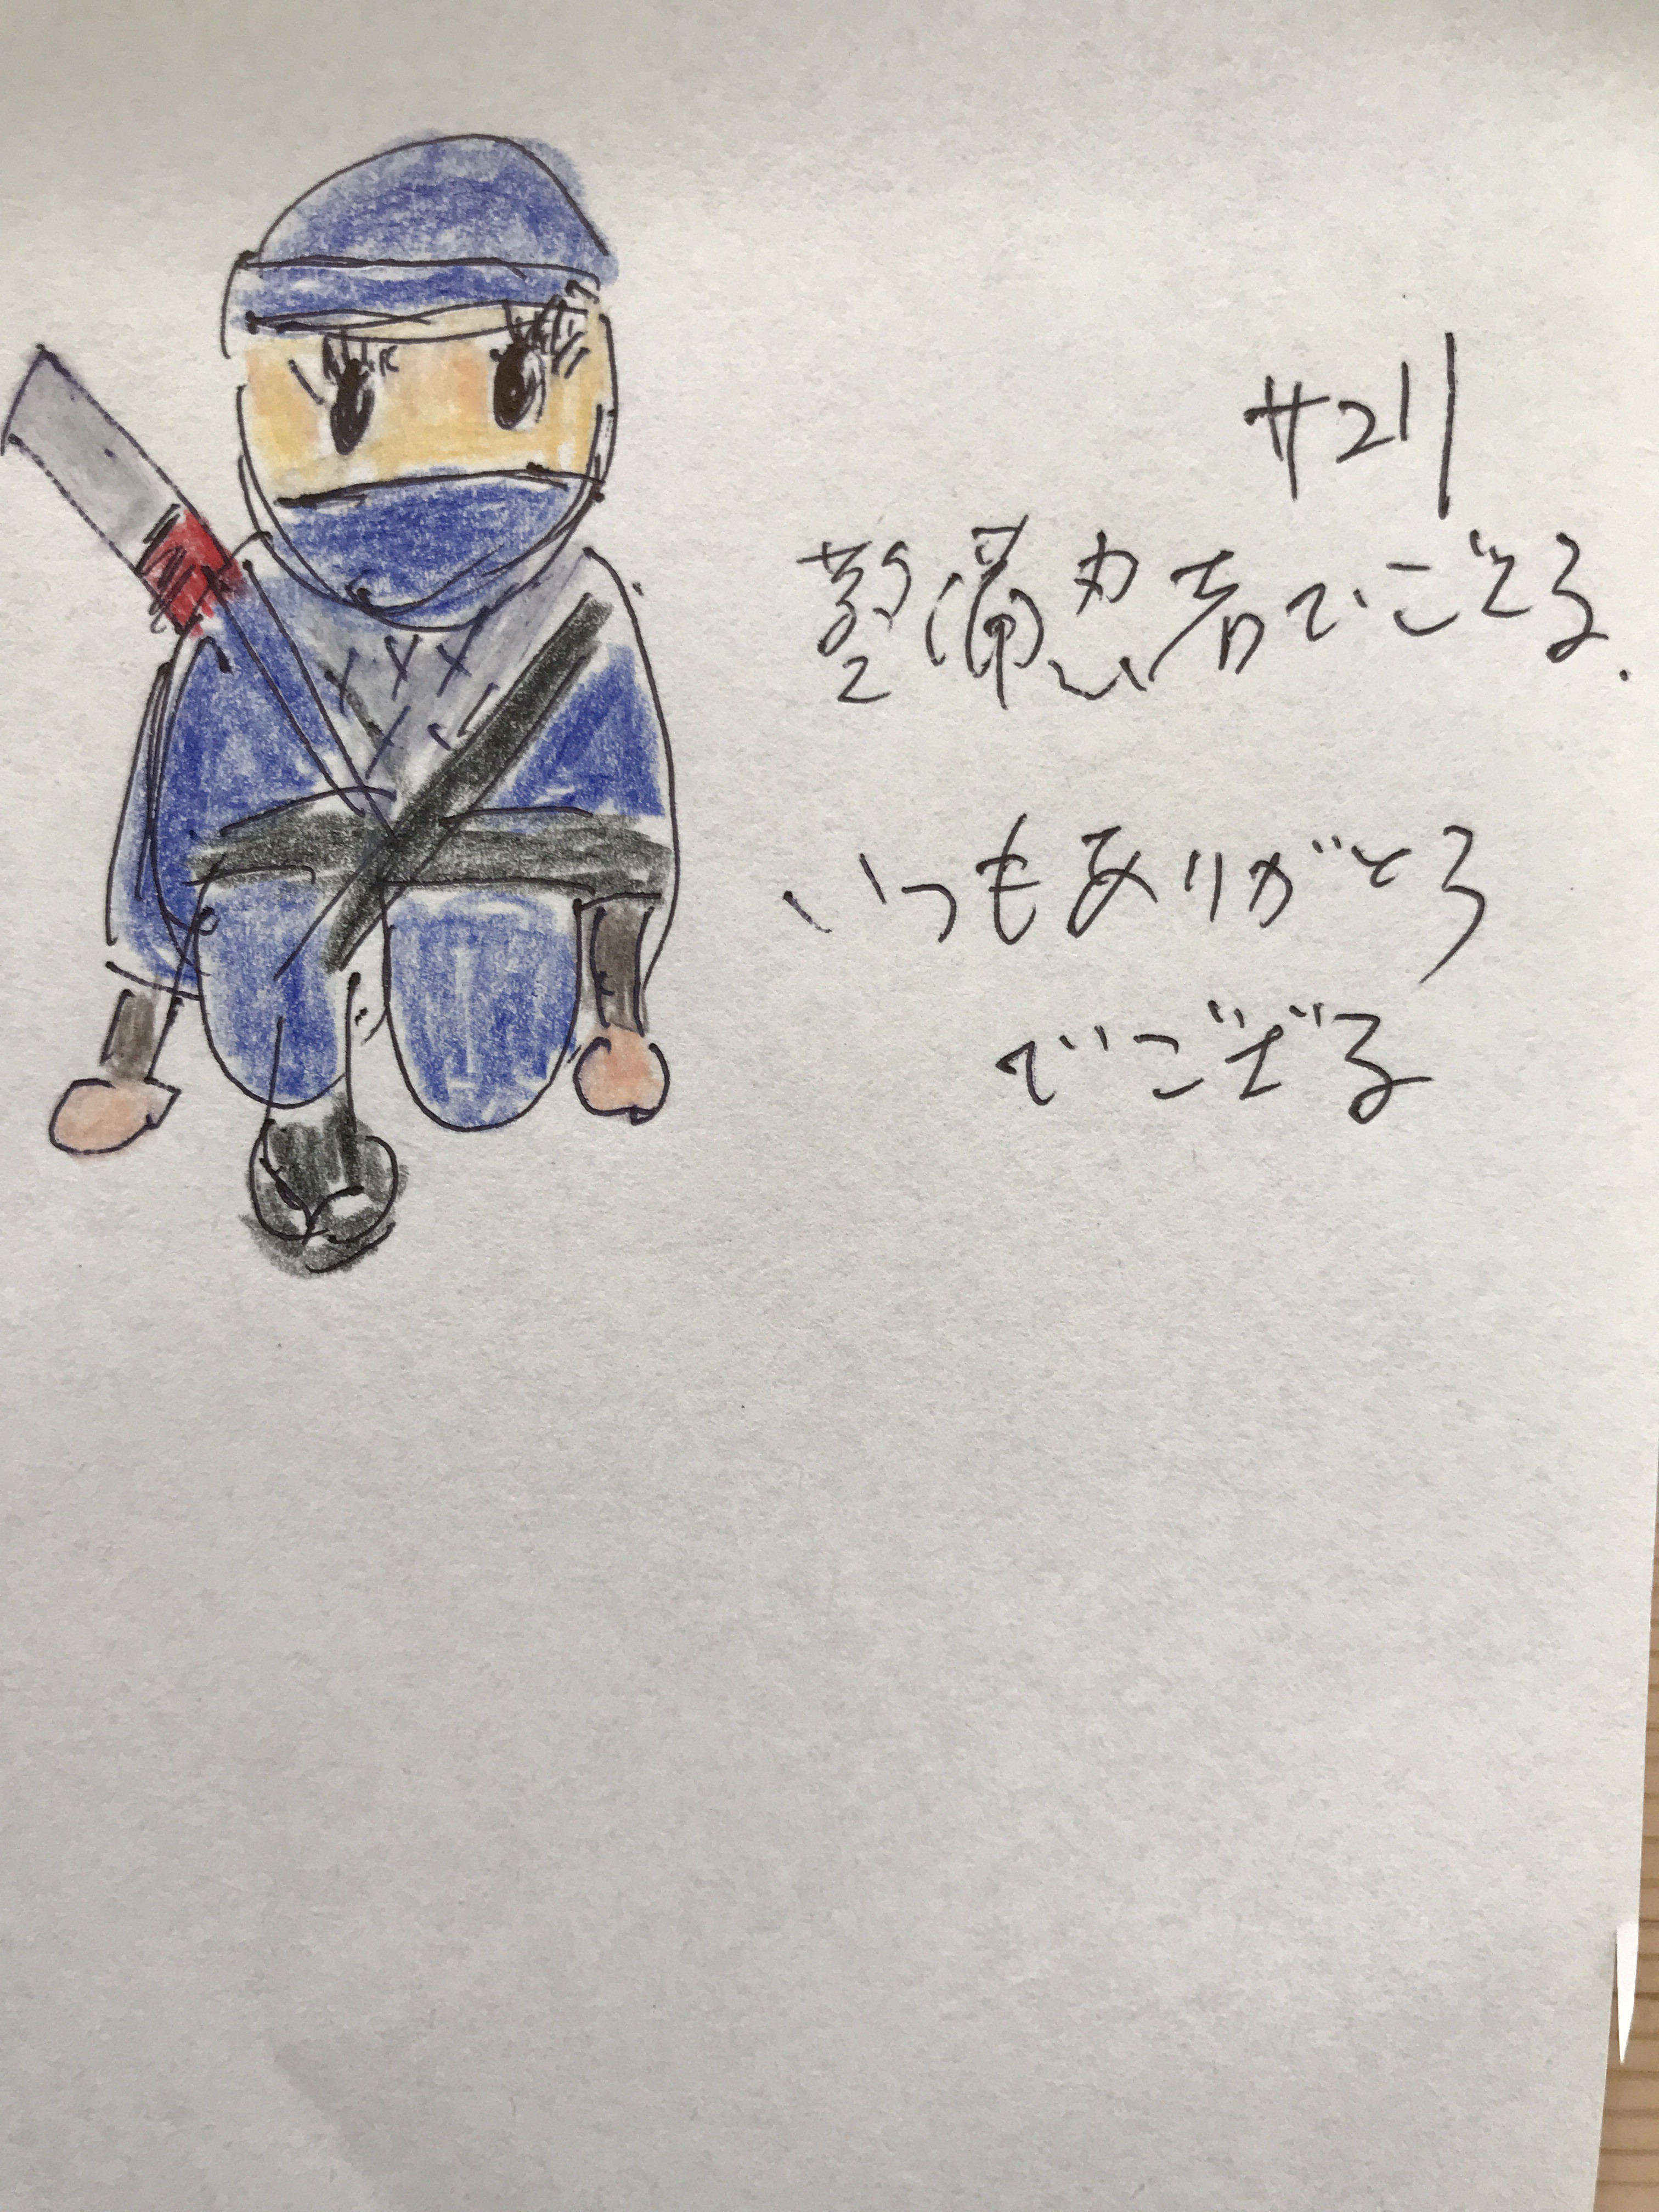 #211
整備忍者でござる.
いつもありがとう
でござる